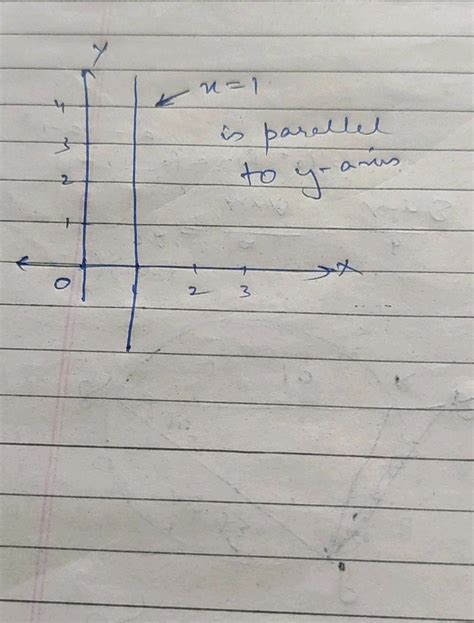 Y
x=1
4
is parallel
3
to y-axis
2
1
X
0
2 3